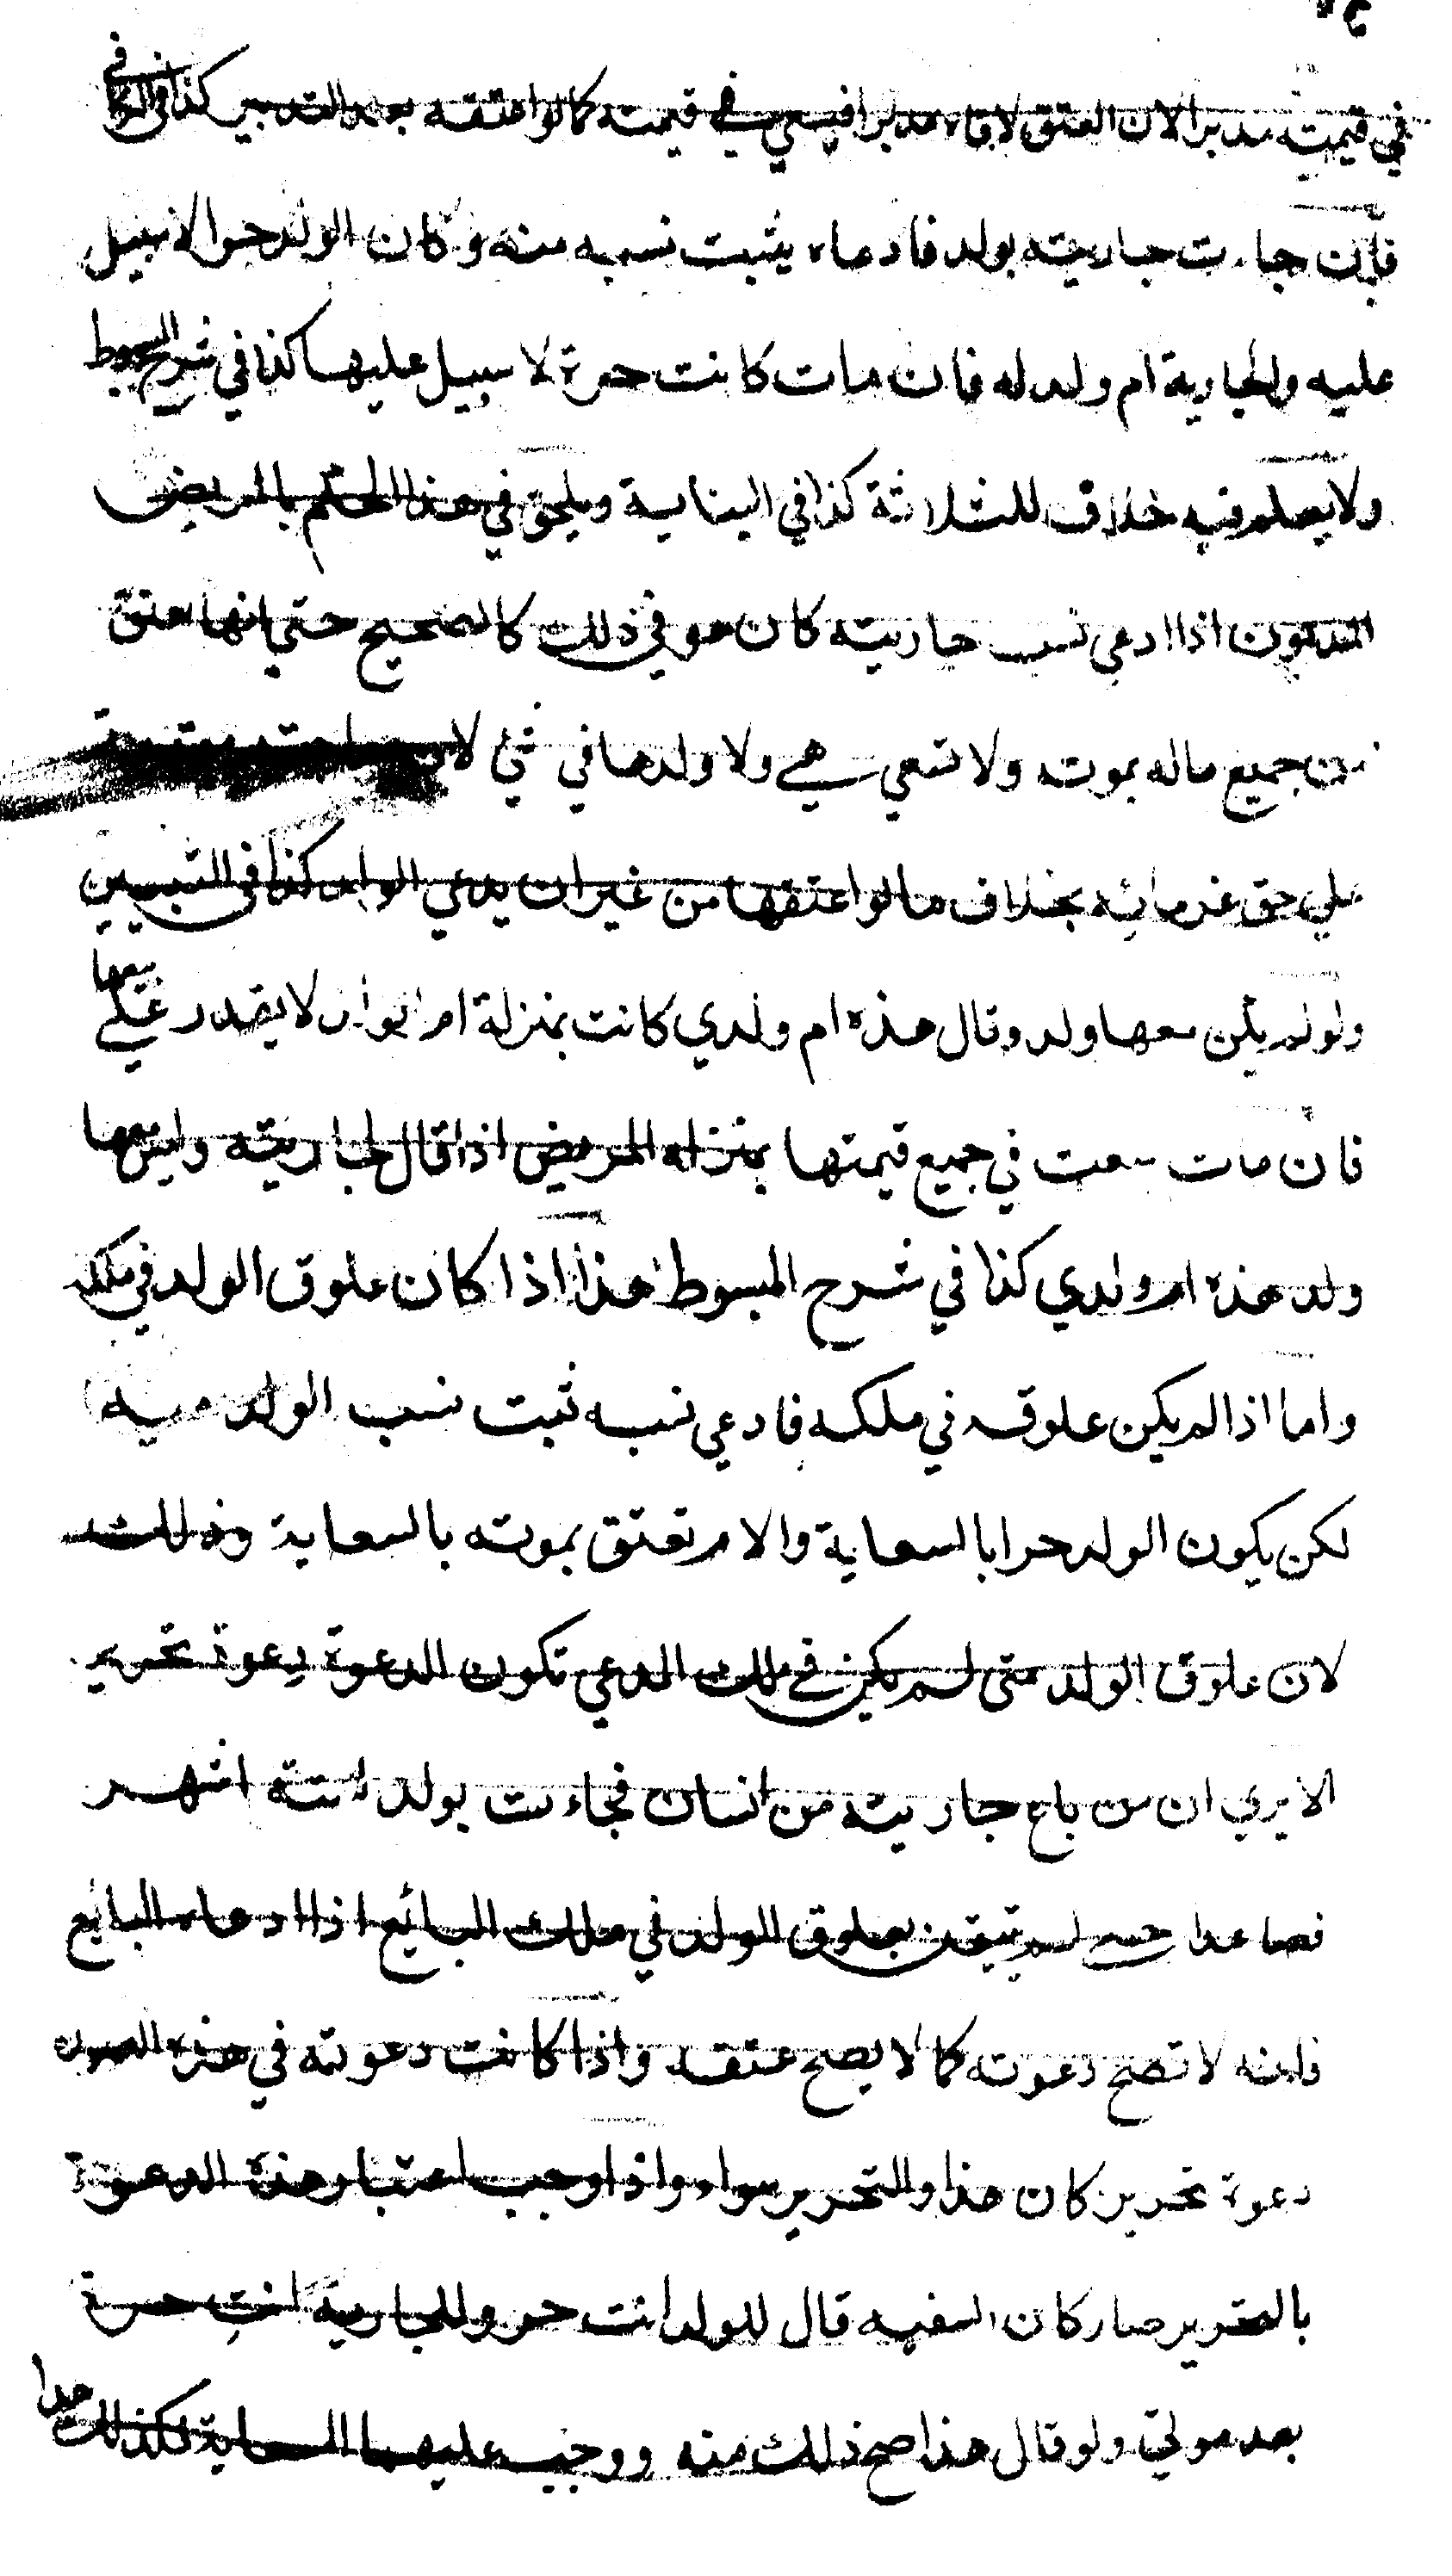 في قيمته مدبرا لان العتق لاقاه مدبرا فيسعي في قيمته كما لو اعتقه بعد التدبير كذا في الكافي
فإن جاءت جاريته بولد فادعاه يثبت نسبه منه وكان الولد حرا لا سبيل
عليه والجارية ام ولد له فان مات كانت حرة لا سبيل عليها كذا في شرح المبسوط
ولا يعلم فيه خلاف للثلاثة كذا في البناية ويلحق في هذا الحكم بالمريض
المديون اذا ادعي نسب جاريته كان هو في ذلك كالصحيح حتي انها تعتق
من جميع ماله بموته ولا تسعي هي ولا ولدها في شئ لان حاجته مقدمة
علي حق غرمائه بخلاف ما لو اعتقها من غير ان يدعي الولد كذا في التبيين
ولو لم يكن معها ولد وقال هذه ام ولدي كانت بمنزلة ام الولد لا يقدر علي بيعها
فان مات سعت في جميع قيمتها بمنزلة المريض اذا قال لجاريته وليس معها
ولد هذه ام ولدي كذا في شرح المبسوط هذا اذا كان علوق الولد في ملكه
واما اذا لم يكن علوقه في ملكه فادعي نسبه ثبت نسب الولد منه
لكن يكون الولد حرا بالسعاية والام تعتق بموته بالسعاية وذلك
لان علوق الولد متى لم يكن في ملك المدعي تكون الدعوة دعوة تحرير
الا يري ان من باع جاريته من انسان فجاءت بولد لستة اشهر
فصاعدا حتى لم نتيقن بعلوق الولد في ملك البائع اذا ادعاه البائع
فانه لا تصح دعوته كما لا يصح عتقه واذا كانت دعوته في هذه الصورة
دعوة تحرير كان هذا والتحرير سواء واذا وجب اعتبار هذه الدعوة
بالتحرير صار كان السفيه قال للولد انت حر وللجارية انتِ حرة
بعد موتي ولو قال هذا صح ذلك منه ووجب عليهما السعاية فكذلك هذا